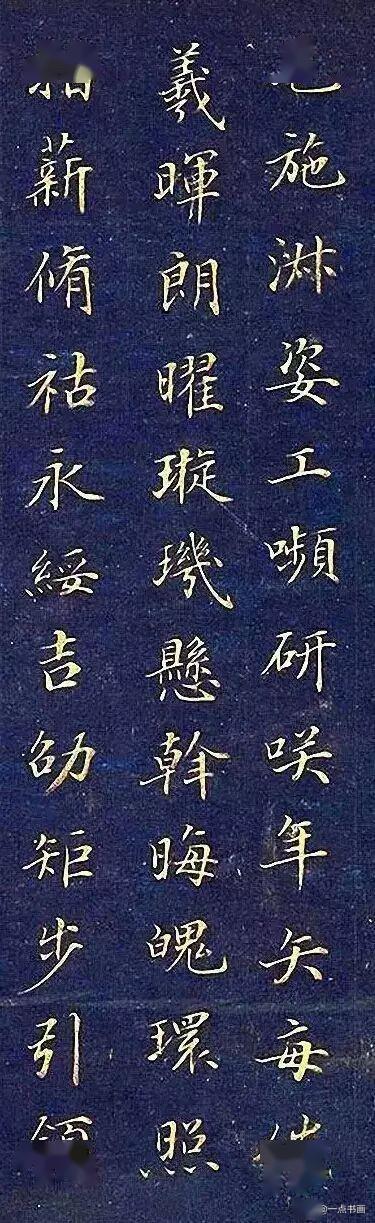 施淑姿工嚬研咲年矢每
羲暉朗曜璇璣懸斡晦魄環照
薪脩祜永綏吉劭矩步引
@一点书画